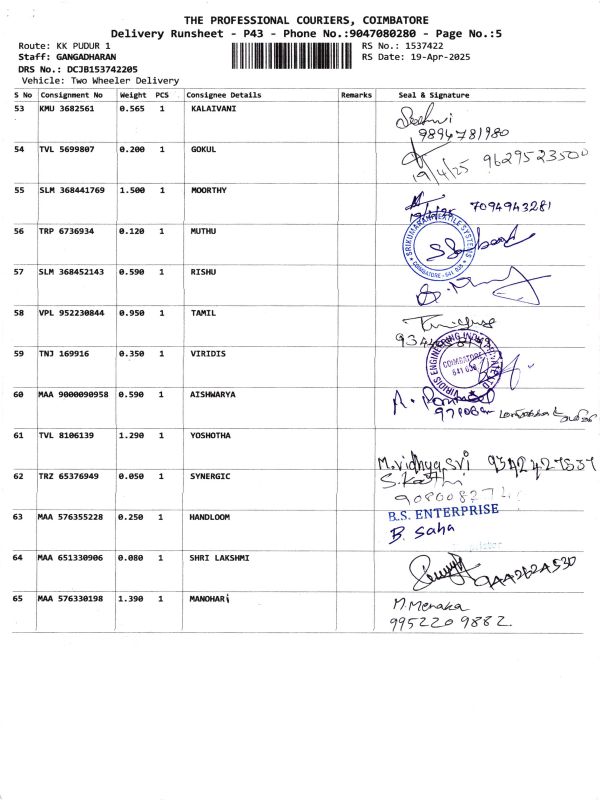 THE PROFESSIONAL COURIERS, COIMBATORE
Delivery Runsheet - P43 - Phone No.:9047080280 - Page No.:5
Route: KK PUDUR 1 RS No.: 1537422
Staff: GANGADHARAN RS Date: 19-Apr-2025
DRS No.: DCJB153742205
Vehicle: Two Wheeler Delivery
S No Consignment No Weight PCS Consignee Details Remarks Seal & Signature
53 KMU 3682561 0.565 1 KALAIVANI
9894781980
54 TVL 5699807 0.200 1 GOKUL
19/4/25 9629523500
55 SLM 368441769 1.500 1 MOORTHY
19/4/25 7094943281
56 TRP 6736934 0.120 1 MUTHU
SRIKUMARAN TEXTILE SYSTEMS
COIMBATORE - 641
57 SLM 368452143 0.590 1 RISHU
58 VPL 952230844 0.950 1 TAMIL
59 TNJ 169916 0.350 1 VIRIDIS
VIRIDIS ENGINEERING
COIMBATORE
641 038
60 MAA 9000090958 0.590 1 AISHWARYA
61 TVL 8106139 1.290 1 YOSHOTHA
M.Vidhya Sri 9342427537
62 TRZ 65376949 0.050 1 SYNERGIC
63 MAA 576355228 0.250 1 HANDLOOM
B.S. ENTERPRISE
B. Saha
64 MAA 651330906 0.080 1 SHRI LAKSHMI
65 MAA 576330198 1.390 1 MANOHARi
M.Menaka
9952209882.